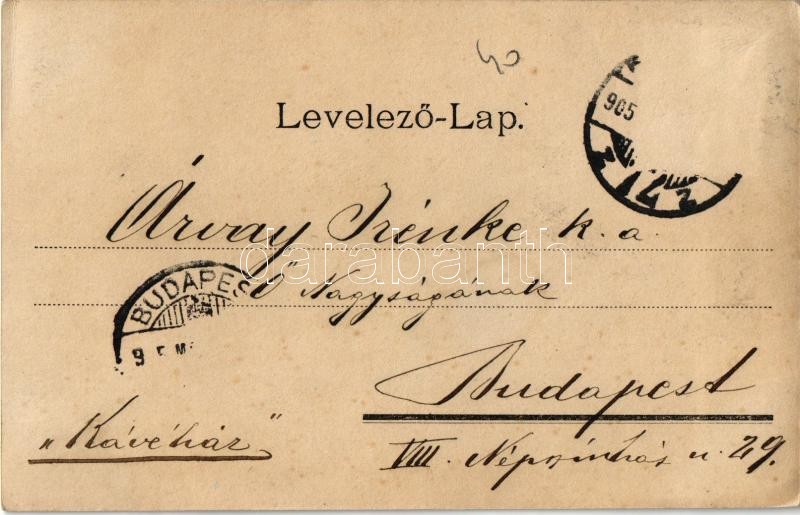 40
Levelező-Lap.
905
Árvay Irénke k. a.
darabanth
BUDAPES
Ő Nagyságának
9 5 M
Budapest
„Kávéház”
VIII. Népszínház u. 29.